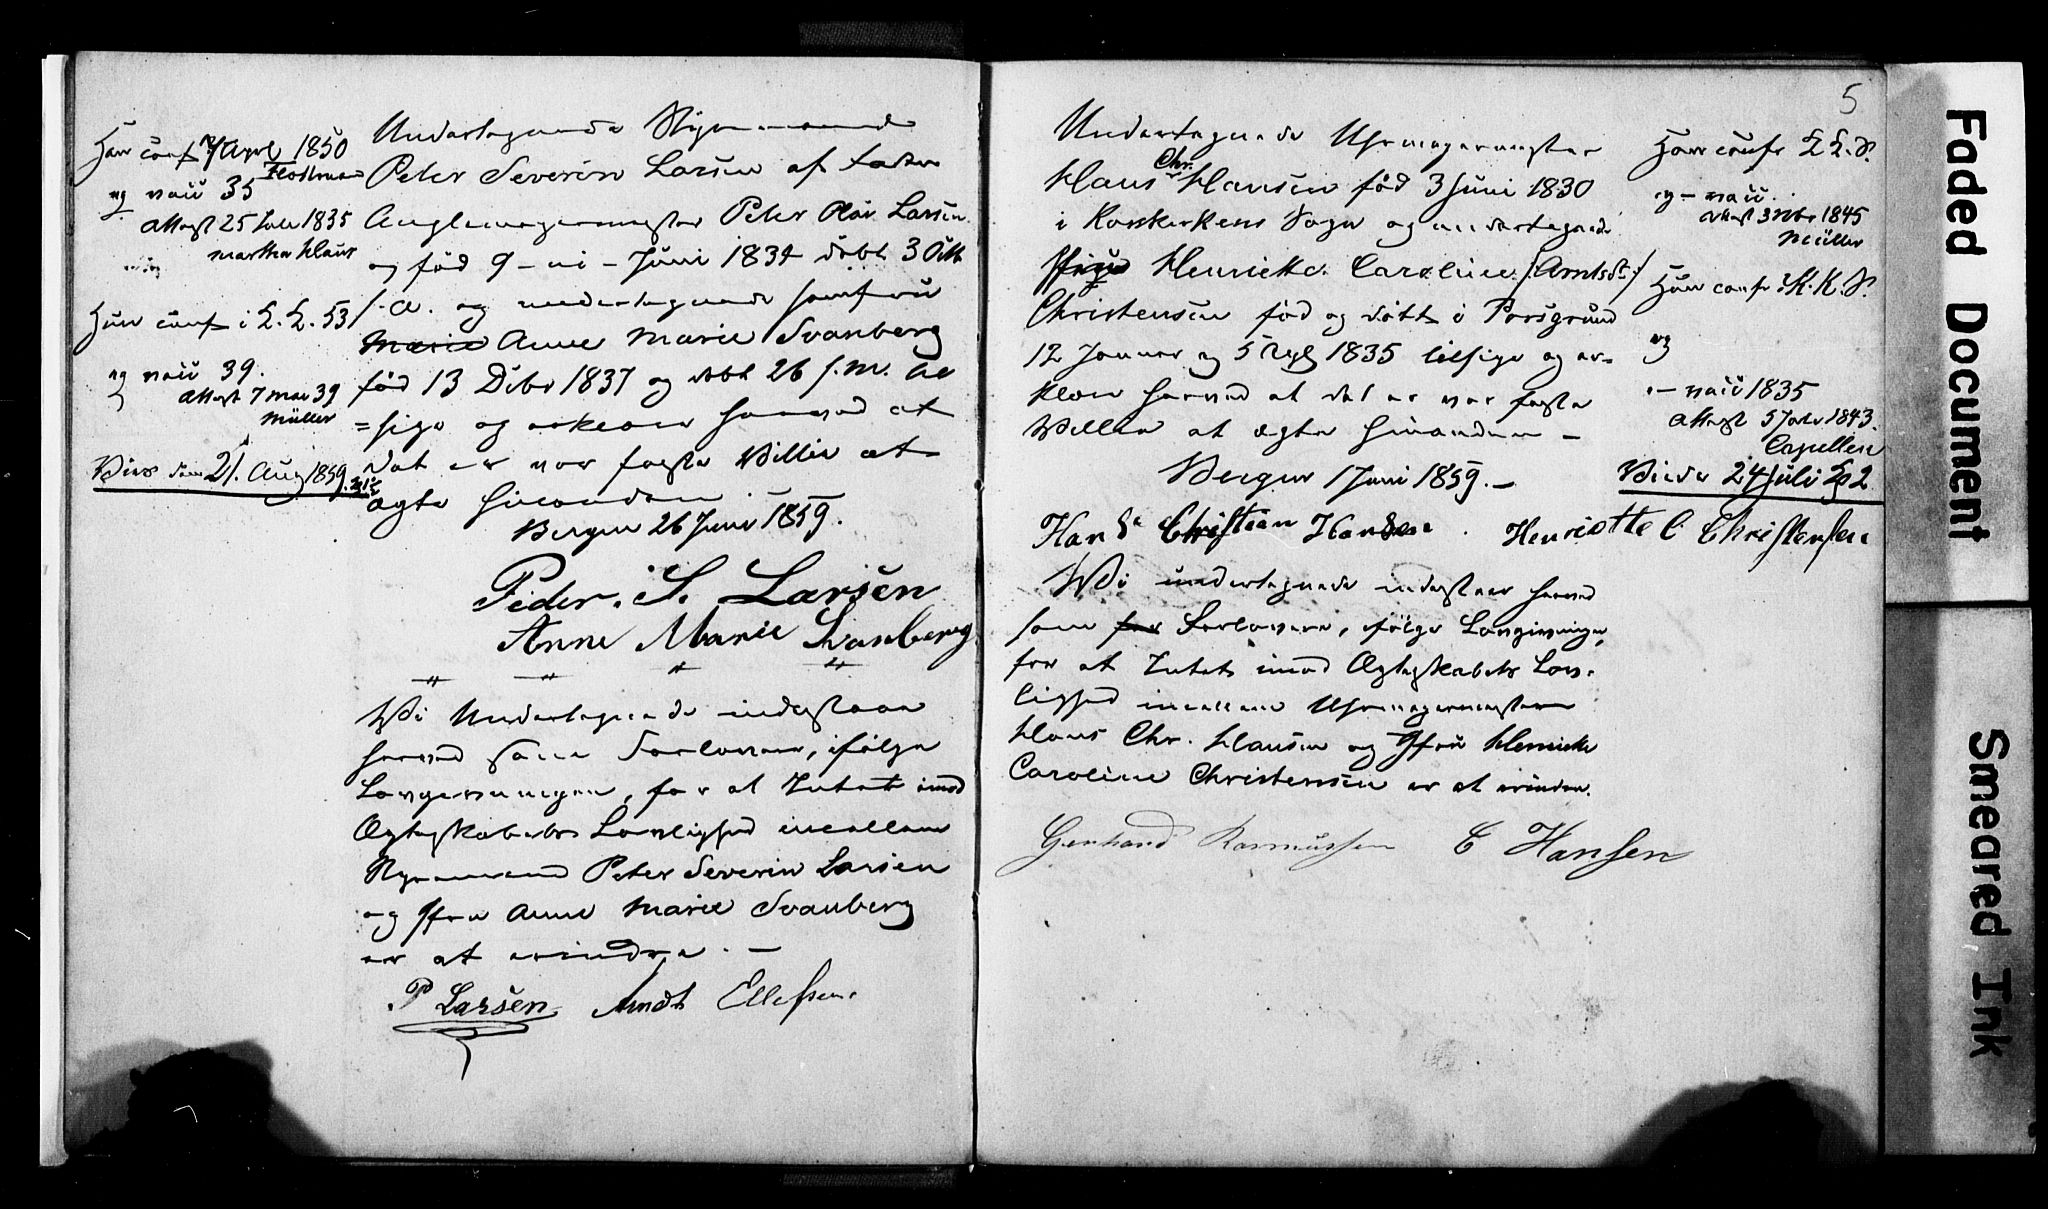 Han conf 7 April 1850
og vacc 35
Attest 25 1835
Hun conf i L. L. 53
og vacc 39.
Attest 7 Mai 39
Müller
Viet den 21. Aug 1859.
Undertegnede Styrmand
Peter Severin Larsen af Fader
Peter Larsen
og født 9-ni-Juni 1834 døbt 3 Oktb
s. A. og undertegnede Jomfru
Marie Anne Marie Svanberg
født 13 Decbr 1837 og døbt 26 s. M. til
=sige og erklære herved at
det er vor faste Villie at
ægte hinanden.
Bergen 26 Juni 1859.
Peder. S. Larsen
Anne Marie Svanberg
Vi Undertegnede indestaae
herved som Forlovere, ifølge
Lovgivningen, for at Intet imod
Ægteskabets Lovlighed imellem
Styrmand Peter Severin Larsen
og Jfru Anne Marie Svanberg
er at erindre. —
P Larsen Arndt Ellefsen.
5
Undertegnede Uhrmagermester
Hans Chr. Hansen født 3 Juni 1830
i Korskirkens Sogn og undertegnede
Henriette Caroline /:Arntsdr:/
Christensen født og døbt i Porsgrund
12 Januar og 5 1835 tilsige og er=
klære herved at det er vor faste
Villie at ægte hinanden —
Bergen 1 Juni 1859. —
Hans Christian Hansen. Henriette C Christensen
Vi undertegnede indestaaer herved
som for Forlovere, ifølge Lovgivningen,
for at Intet imod Ægteskabets Lov=
lighed imellem Uhrmagermester
Hans Chr. Hansen og Jfru Henriette
Caroline Christensen er at erindre.
Gerhard Rasmussen C Hansen
Han conf i L. L. S.
og - vacc.
Attest 3 1845
Müller
Hun conf i K. K. S.
og
— vacc 1835
Attest 5 1843.
Capellen
Viede 24 Juli
Faded Document
Smeared Ink